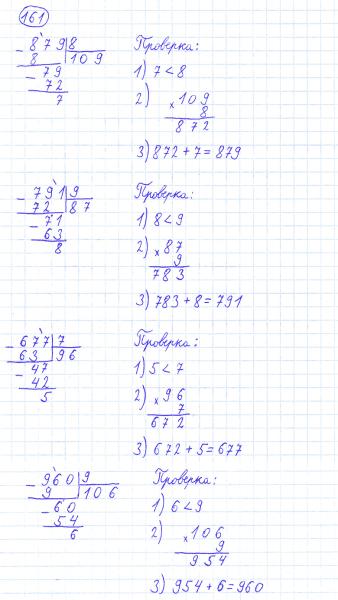 161
879 | 8
8 | 109
79
72
7
Проверка:
1) 7 < 8
2) × 109
8
872
3) 872 + 7 = 879
791 | 9
72 | 87
71
63
8
Проверка:
1) 8 < 9
2) × 87
9
783
3) 783 + 8 = 791
677 | 7
63 | 96
47
42
5
Проверка:
1) 5 < 7
2) × 96
7
672
3) 672 + 5 = 677
960 | 9
9 | 106
60
54
6
Проверка:
1) 6 < 9
2) × 106
9
954
3) 954 + 6 = 960